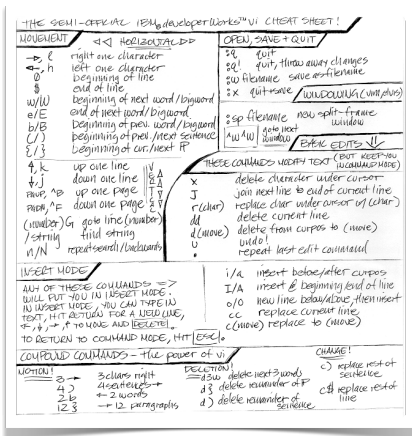 THE SEMI-OFFICIAL IBM developerWorks™ vi CHEAT SHEET!
MOVEMENT ◁◁ HORIZONTAL ▷▷
→, l right one character
←, h left one character
0 beginning of line
$ end of line
w/W beginning of next word/bigword
e/E end of next word/bigword
b/B beginning of prev. word/bigword
(/) beginning of prev./next sentence
{/} beginning of cur./next ¶
↑, k up one line
↓, j down one line
PGUP, ^B up one page
PGDN, ^F down one page
VERTICAL
(number)G goto line (number)
/string find string
n/N repeat search/backwards
OPEN, SAVE + QUIT
:q quit
:q! quit, throw away changes
:w filename save as filename
:x quit+save
WINDOWING (vim, elvis)
:sp filename new split-frame window
^w^w goto next window
BASIC EDITS
THESE COMMANDS MODIFY TEXT (BUT KEEP YOU IN COMMAND MODE)
x delete character under cursor
J join next line to end of current line
r(char) replace char under cursor w/(char)
dd delete current line
d(move) delete from curpos to (move)
u undo!
. repeat last edit command
INSERT MODE
ANY OF THESE COMMANDS =>
WILL PUT YOU IN INSERT MODE.
IN INSERT MODE, YOU CAN TYPE IN
TEXT, HIT RETURN FOR A NEW LINE,
←, ↓, →, ↑ TO MOVE AND DELETE.
TO RETURN TO COMMAND MODE, HIT ESC.
i/a insert before/after curpos
I/A insert @ beginning/end of line
o/O new line below/above, then insert
cc replace current line
c(move) replace to (move)
COMPOUND COMMANDS - the power of vi
MOTION!
3→ 3 chars right
4) 4 sentences →
2b ← 2 words
12} → 12 paragraphs
DELETION!
d3w delete next 3 words
d} delete remainder of ¶
d) delete remainder of sentence
CHANGE!
c) replace rest of sentence
c$ replace rest of line